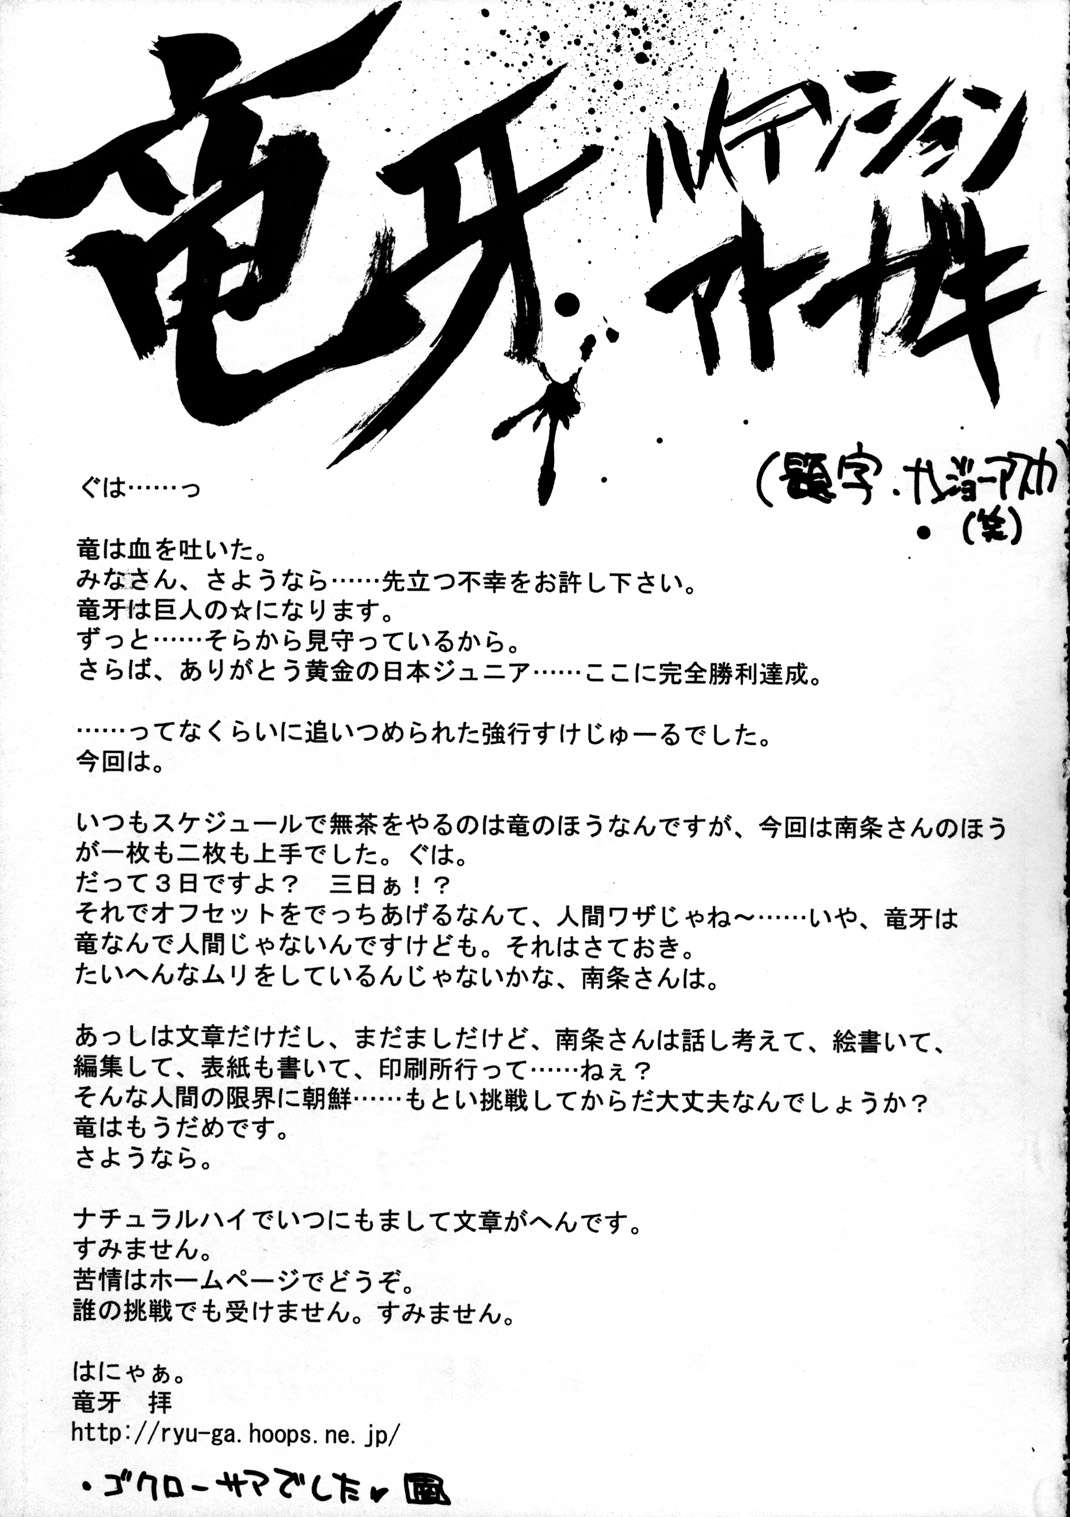 竜牙
アトガキ
(題字・ナンジョーアスカ)
(笑)
ぐは……っ
竜は血を吐いた。
みなさん、さようなら……先立つ不幸をお許し下さい。
竜牙は巨人の☆になります。
ずっと……そらから見守っているから。
さらば、ありがとう黄金の日本ジュニア……ここに完全勝利達成。
……ってなくらいに追いつめられた強行すけじゅーるでした。
今回は。
いつもスケジュールで無茶をやるのは竜のほうなんですが、今回は南条さんのほう
が一枚も二枚も上手でした。ぐは。
だって３日ですよ？　三日ぁ！？
それでオフセットをでっちあげるなんて、人間ワザじゃね～……いや、竜牙は
竜なんで人間じゃないんですけども。それはさておき。
たいへんなムリをしているんじゃないかな、南条さんは。
あっしは文章だけだし、まだましだけど、南条さんは話し考えて、絵書いて、
編集して、表紙も書いて、印刷所行って……ねぇ？
そんな人間の限界に朝鮮……もとい挑戦してからだ大丈夫なんでしょうか？
竜はもうだめです。
さようなら。
ナチュラルハイでいつにもまして文章がへんです。
すみません。
苦情はホームページでどうぞ。
誰の挑戦でも受けません。すみません。
はにゃぁ。
竜牙　拝
http://ryu-ga.hoops.ne.jp/
・ゴクローサマでした♥